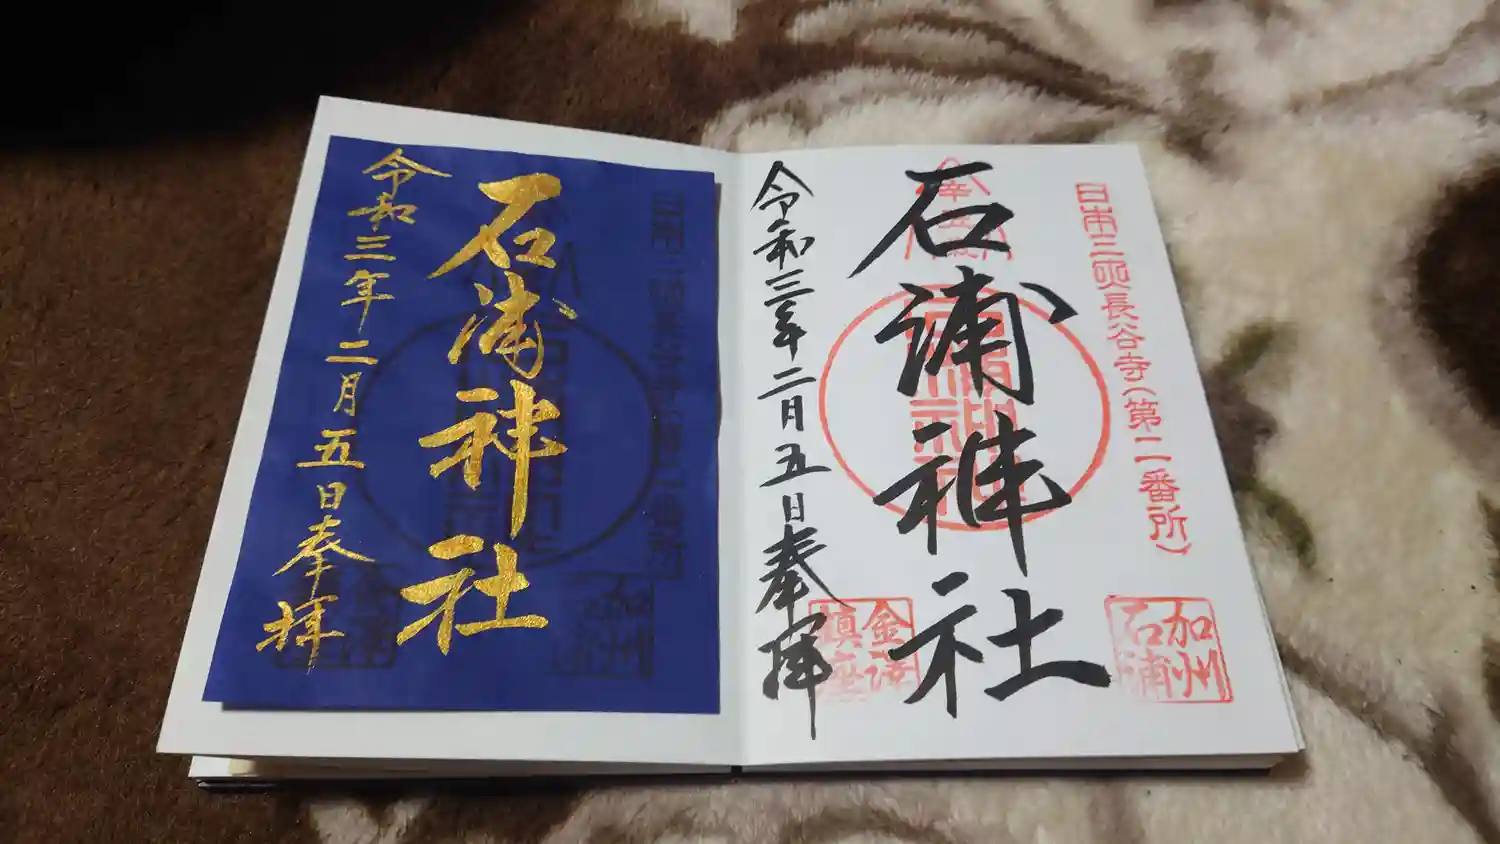 日本三所長谷寺(第二番所)
石浦神社
加州
石浦
金澤
鎮座
令和三年二月五日奉拝
石浦神社
令和三年二月五日奉拝